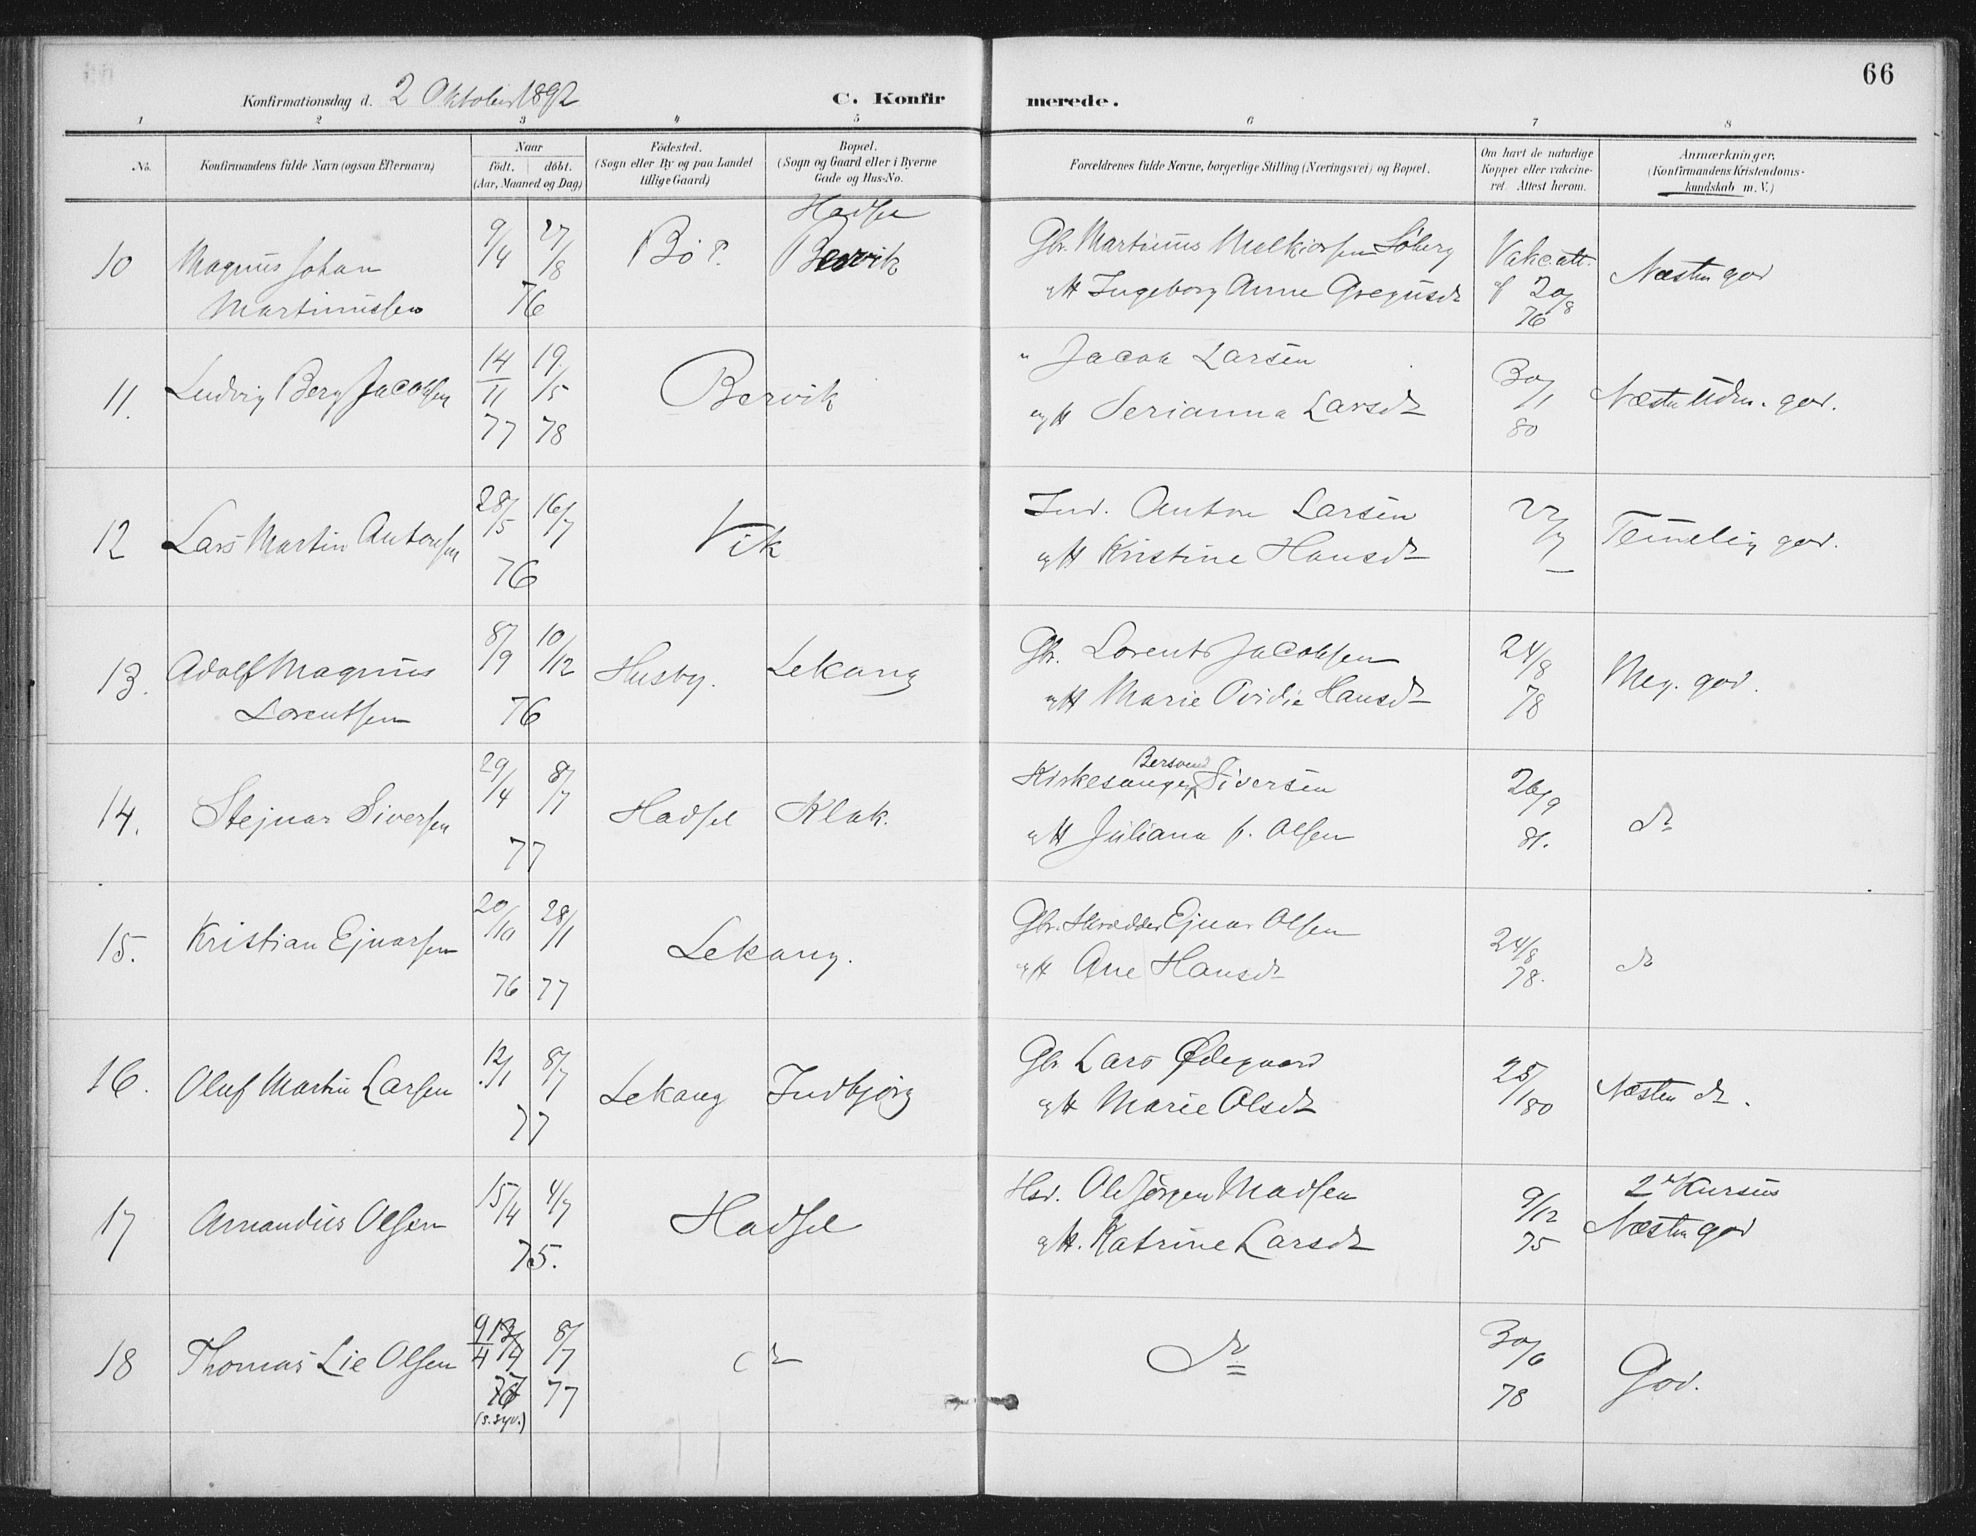 66
Konfirmationsdag d. 2 Oktober 1892
C. Konfirmerede.
1 2 3 4 5 6 7 8
No.
Konfirmandens fulde Navn (ogsaa Efternavn)
Naar
födt. döbt.
(Aar, Maaned og Dag)
Födested.
(Sogn eller By og paa Landet
tillige Gaard)
Bopæl.
(Sogn og Gaard eller i Byerne
Gade og Hus-No.
Forældrenes fulde Navne, borgerlige Stilling (Næringsvei) og Bopæl.
Om havt de naturlige
Kopper eller vakcine-
ret. Attest herom.
Anmærkninger.
(Konfirmandens Kristendoms-
kundskab m. V.)
10 Magnus Johan
Martinussen
9/4 27/8
76
Bø P.
Hadsel
Børvik
Gbr. Martinus Melkiorsen Søberg
og H Ingeborg Anne Gregusdr
Vakc.att.
af 20/8
76
Næsten god
11. Ludvig Berg Jacobsen
14/11 19/5
77 78
Børvik
" Jacob Larsen
og H Serianna Larsdr
30/1
80
Næsten Udm. god.
12 Lars Martin Antonsen
28/5 16/7
76
Vik
Ind. Anton Larsen
og H Kristine Hansdr
22/7
Temelig god.
13. Adolf Magnus
Lorentsen
8/9 10/12
76
Husby. Lekang
Gbr. Lorents Jacobsen
og H Marie Ovidie Hansdr
24/8
78
Meg. god.
14. Stejnar Siversen
29/4 8/7
77
Hadsel Klak.
Bersvend
Kirkesanger Siversen
og H Juliana f. Olsen
26/9
81.
dr
15. Kristian Ejnarsen
20/10 28/1
76 77
Lekang.
Gbr. Skrædder Ejnar Olsen
og H Ane Hansdr
24/8
78.
dr
16. Oluf Martin Larsen
12/1 8/7
77
Lekang Indbjørg
Gbr Lars Ødegaard
og H Marie Olsdr
25/1 80
Næsten dr.
17 Amandus Olsen
15/4 4/7
75.
Hadsel
Hsd. Ole Jørgen Madsen
og H. Katrine Larsdr
9/12
75
2det Kursus
Næsten god
18 Thomas Lie Olsen
9/4 8/7
77
dr
dr
30/6
78
God.